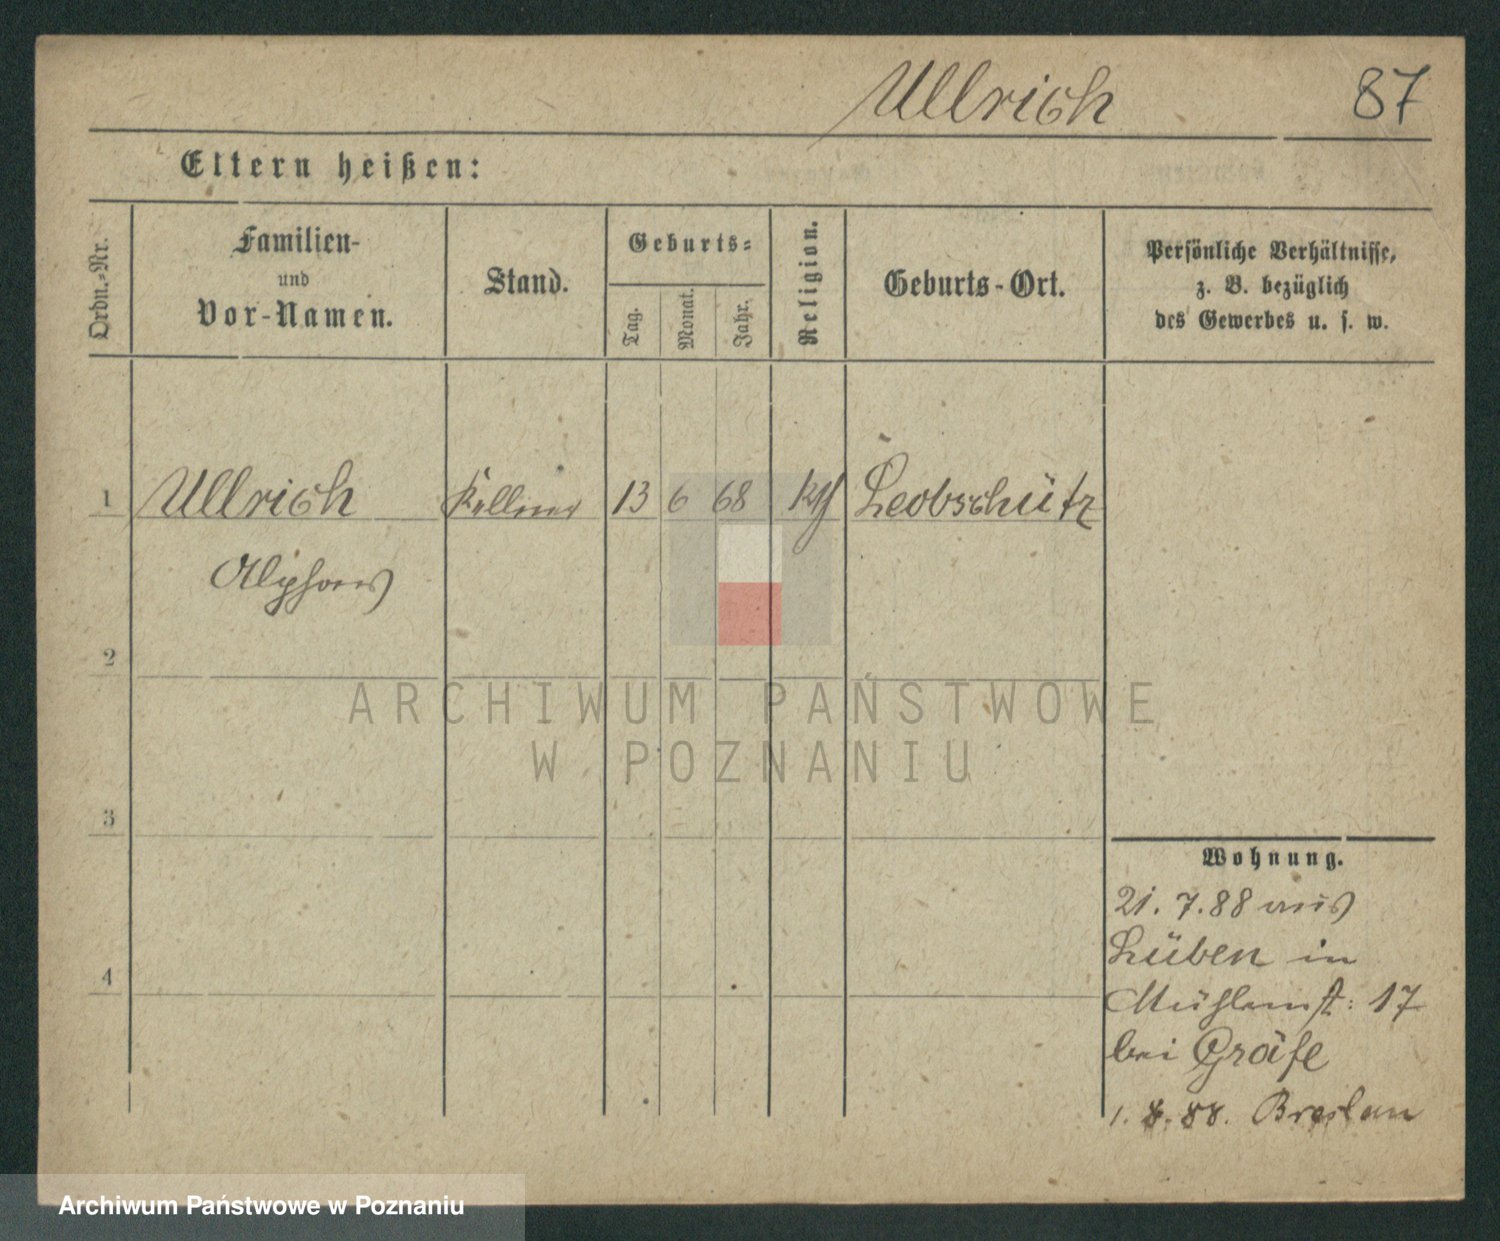 Ullrich 87
Eltern heißen:
Ordn.-Nr.
Familien-
und
Vor-Namen.
Stand.
Geburts-
Tag.
Monat.
Jahr.
Religion.
Geburts-Ort.
Persönliche Verhältnisse,
z. B. bezüglich
des Gewerbes u. s. w.
1 Ullrich Kellner 13 6 68 kth Leobschütz
Alphons
2
3
4
Wohnung.
21. 7. 88 aus
Lüben in
Mühlenst: 17
bei Gräfe
1. 8. 88. Breslau
ARCHIWUM PAŃSTWOWE
W POZNANIU
Archiwum Państwowe w Poznaniu